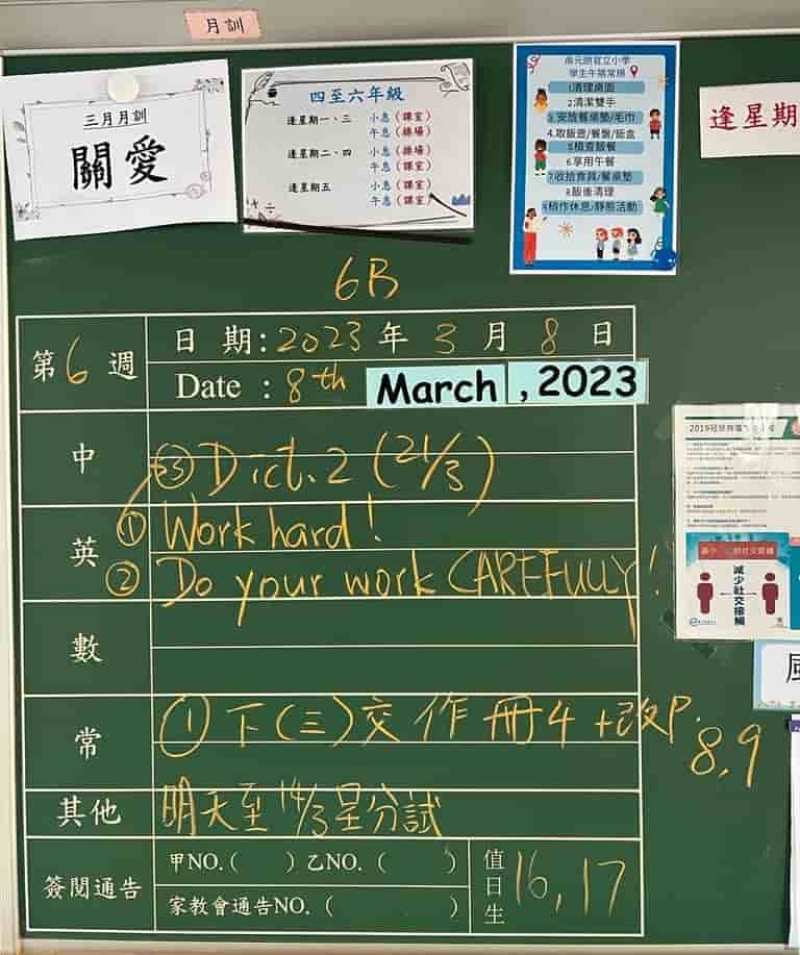 月訓
三月月訓
關愛
四至六年級
逢星期一、三 小息（課室）
午息（操場）
逢星期二、四 小息（操場）
午息（課室）
逢星期五 小息（課室）
午息（課室）
南元朗官立小學
學生午膳常規
1.清理桌面
2.清潔雙手
3.安放餐桌墊/毛巾
4.取飯壺/餐盤/飯盒
5.檢查飯餐
6.享用午餐
7.收拾食具/餐桌墊
8.飯後清理
9.稍作休息/靜態活動
逢星期
6B
第6週
日期:2023年3月8日
Date : 8th March , 2023
中
③Dict. 2 (21/3)
英
① Work hard!
② Do your work CAREFULLY!
數
常
①下(三)交作冊4+改P.8,9
其他
明天至14/3呈分試
簽閱通告
甲NO.( )乙NO.( )
家教會通告NO.( )
值日生
16,17
減少社交接觸
風